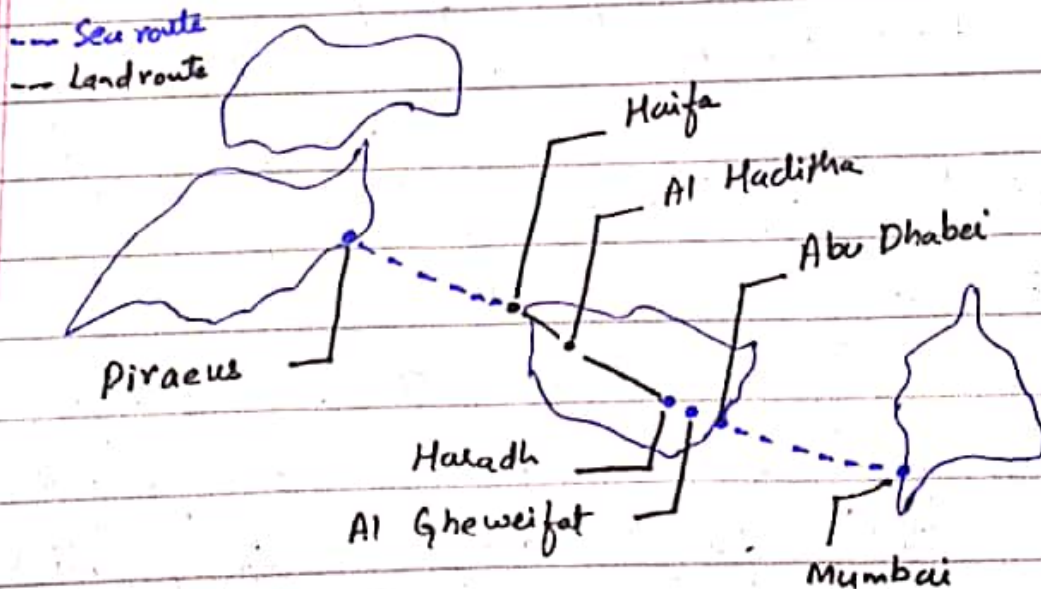 --- Sea route
--- Land route
Haifa
Al Haditha
Abu Dhabei
Piraeus
Haradh
Al Gheweifat
Mumbai